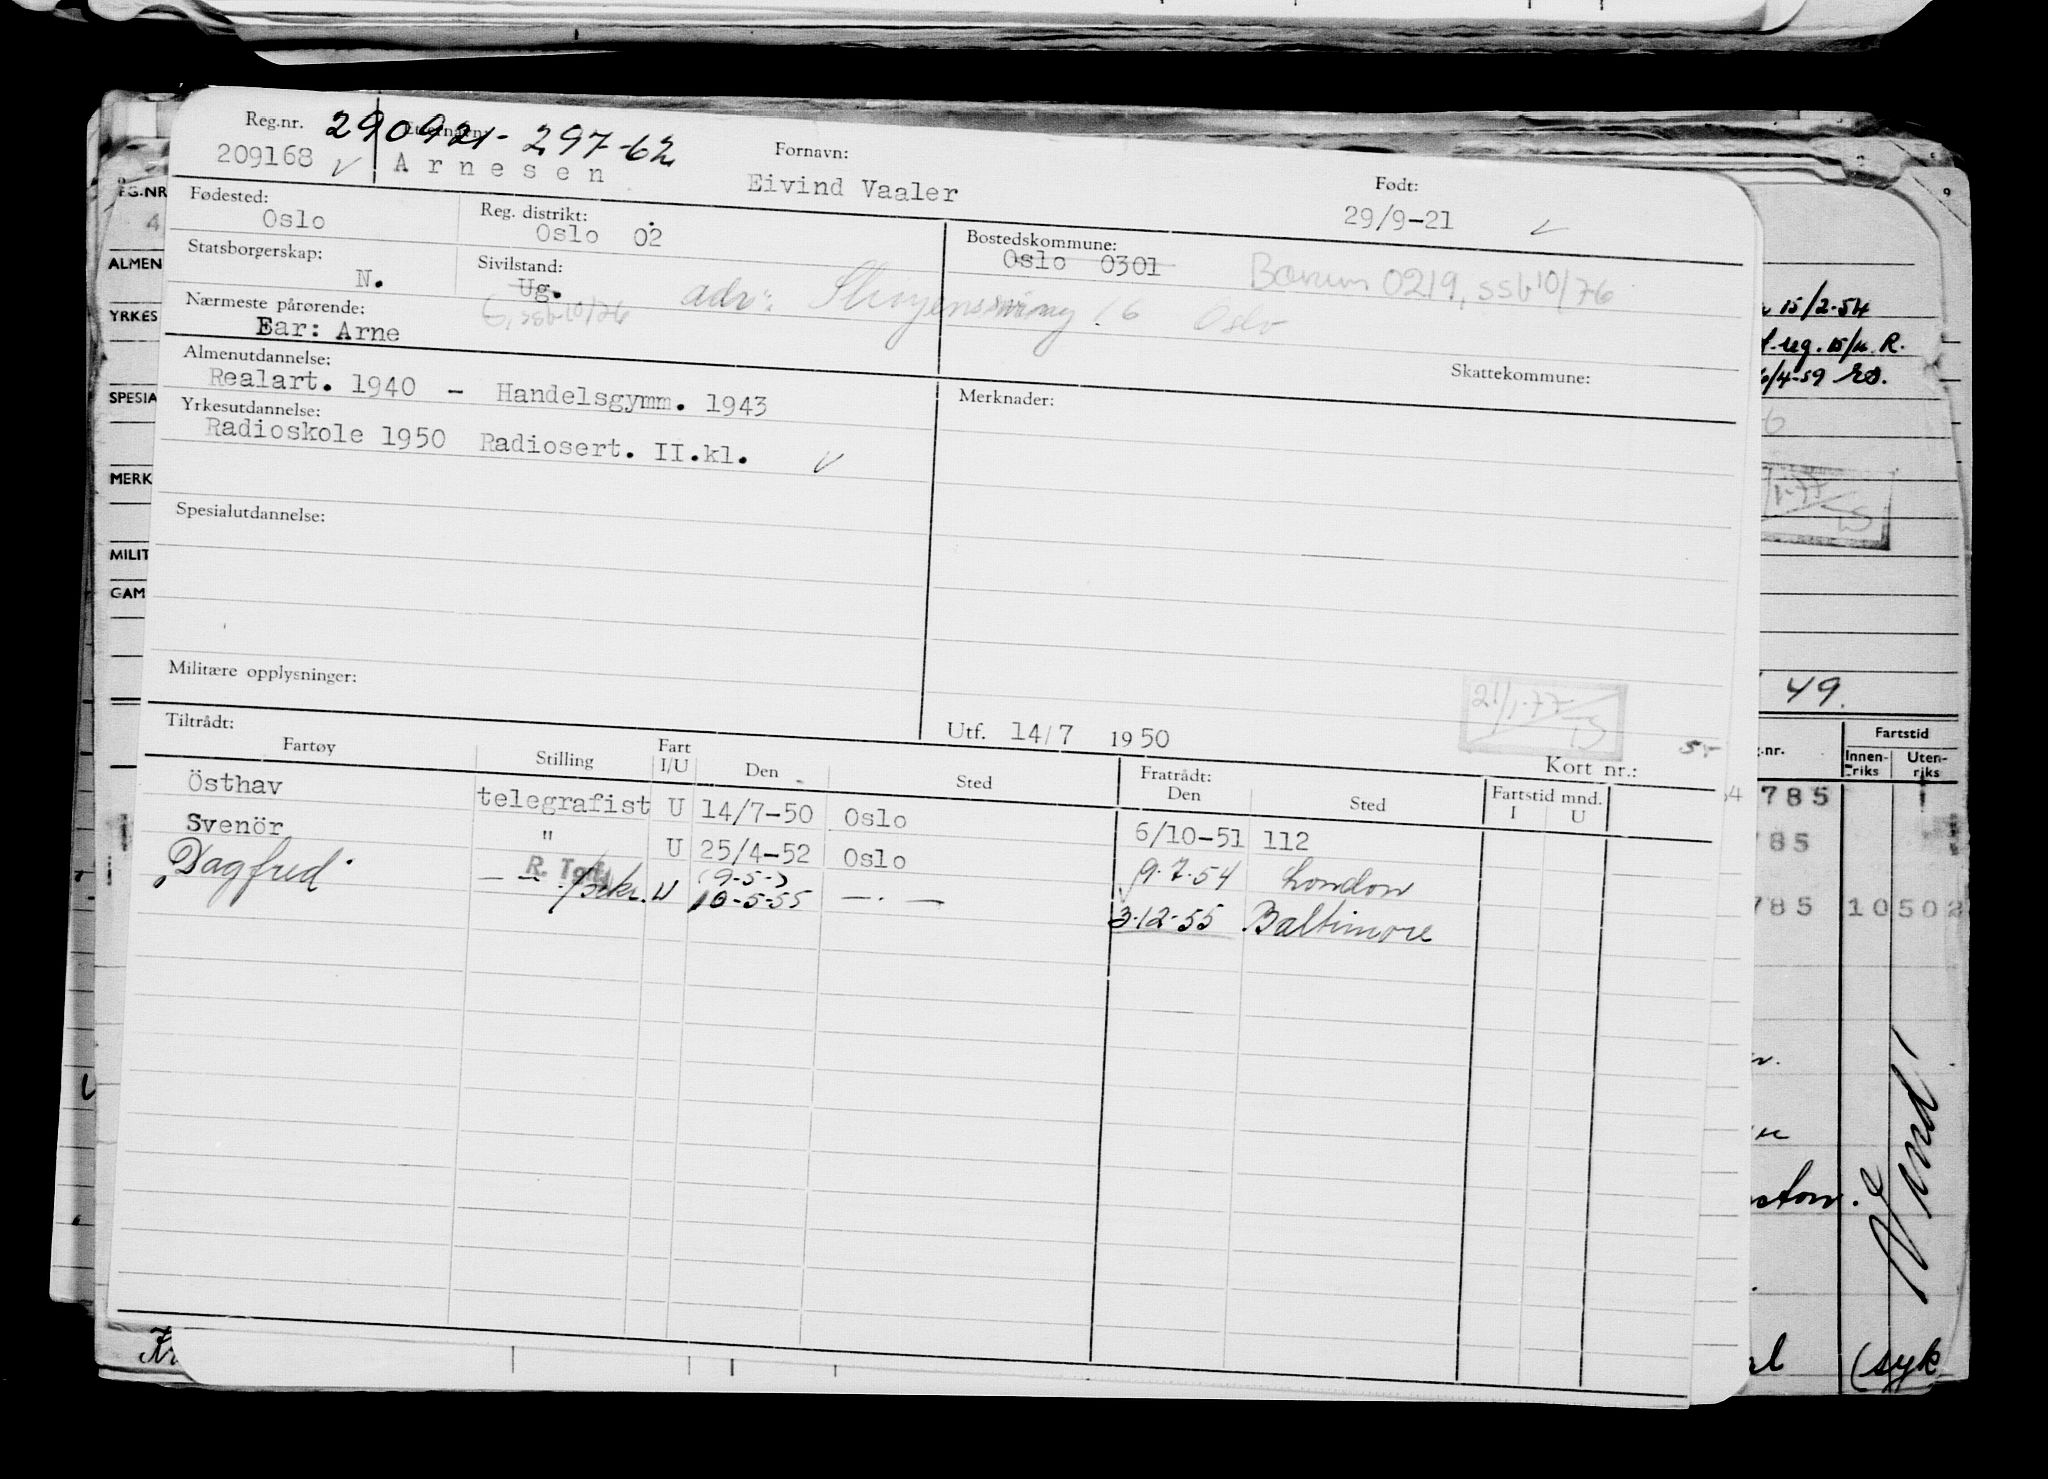 Reg.nr. 290921-297-62 Fornavn: Født:
209168 Arnesen Eivind Vaaler 29/9-21
Fødested: Reg. distrikt: Bostedskommune:
Oslo Oslo 02 Oslo 0301 Bærum 0219, ssb 10/76
Statsborgerskap: Sivilstand:
N. Ug. G, ssb 10/76 adr: 16 Oslo
Nærmeste pårørende:
Far: Arne
Skattekommune:
Almenutdannelse: Merknader:
Realart. 1940 - Handelsgymm. 1943
Yrkesutdannelse:
Radioskole 1950 Radiosert. II.kl.
Spesialutdannelse:
Militære opplysninger:
21/1-77
Tiltrådt: Utf. 14/7 1950 Kort nr.:
Fartøy Stilling Fart I/U Den Sted Fratrådt: Den Sted Fartstid mnd. I U
Østhav telegrafist U 14/7-50 Oslo 6/10-51 112
Svenör " U 25/4-52 Oslo 9.7.54 London
(9-5-)
Dagfred R. Telg. U 10-5-55 —.— 3.12-55 Baltimore
FG.NR
4
ALMEN
YRKES
SPESIA
MERK
MILIT
GAM
15/2-54
reg. 15/ R.
6/4-59
1-77
49.
nr. Fartstid
Innen-riks Uten-riks
785
785
785 10502
(syk